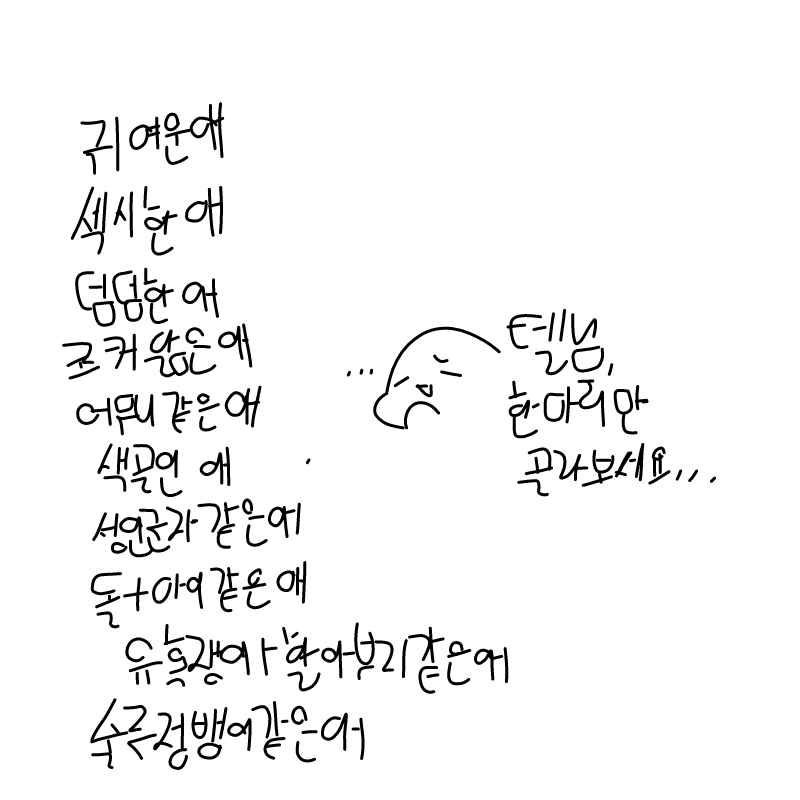 귀여운애
섹시한 애
덤덤한 애
조커 닮은애
어무니 같은애
색골인 애
성인군자 같은애
돌+아이 같은 애
유흑쟁이 할아부지같은애
술주정뱅이같은애
...
텔님,
한마리만
골라보세요...